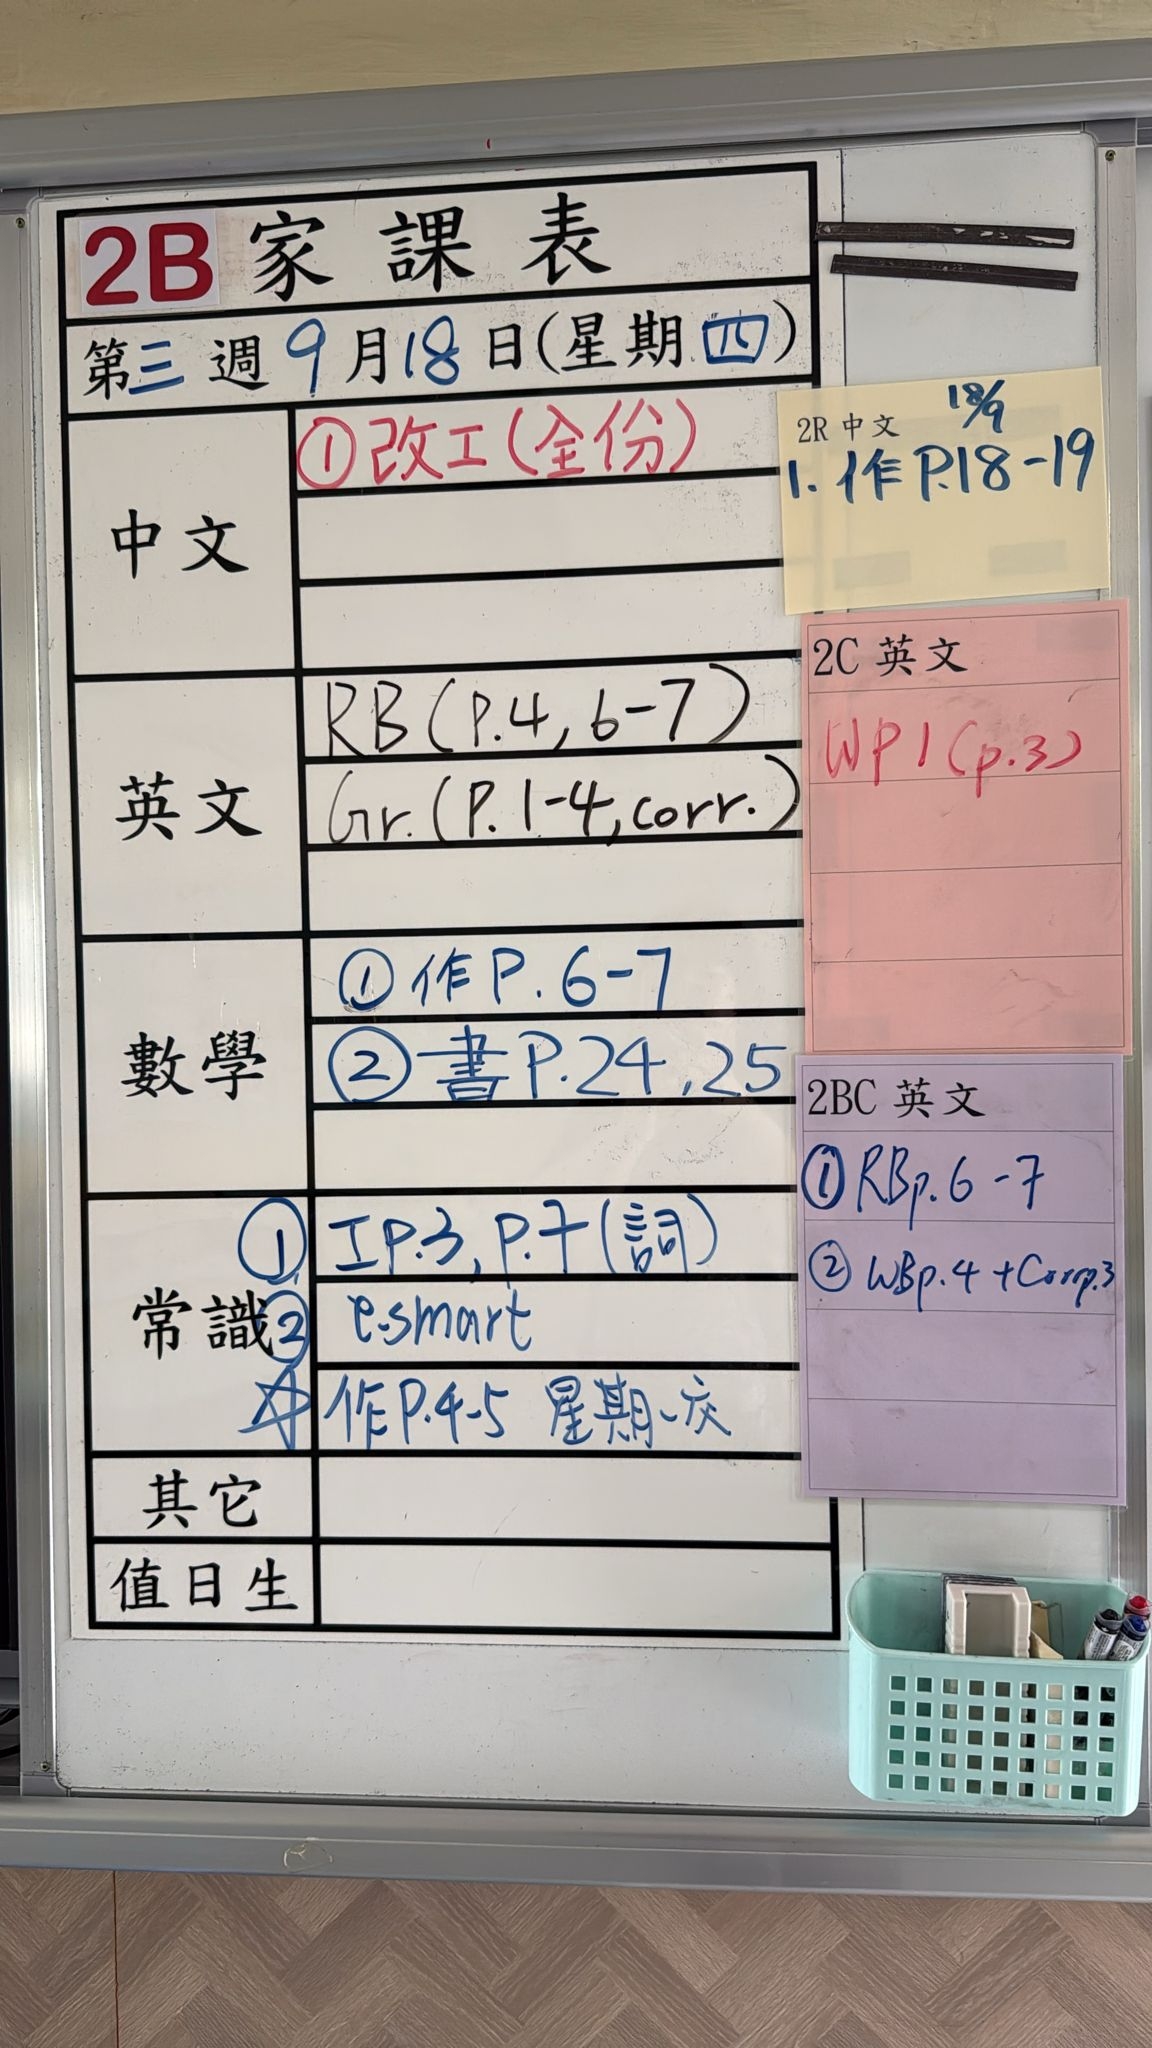 2B 家課表
第三週 9月18日(星期四)
中文
①改工(全份)
英文
RB (P.4, 6-7)
Gr. (P. 1-4, corr.)
數學
①作P. 6-7
②書P.24,25
常識
① 工P.3, P.7(詞)
② e.smart
☆ 作P.4-5 星期一交
其它
值日生
2R 中文 18/9
1. 作P.18-19
2C 英文
WP1 (p.3)
2BC 英文
① RBp.6-7
② WBp.4 + Corrp.3